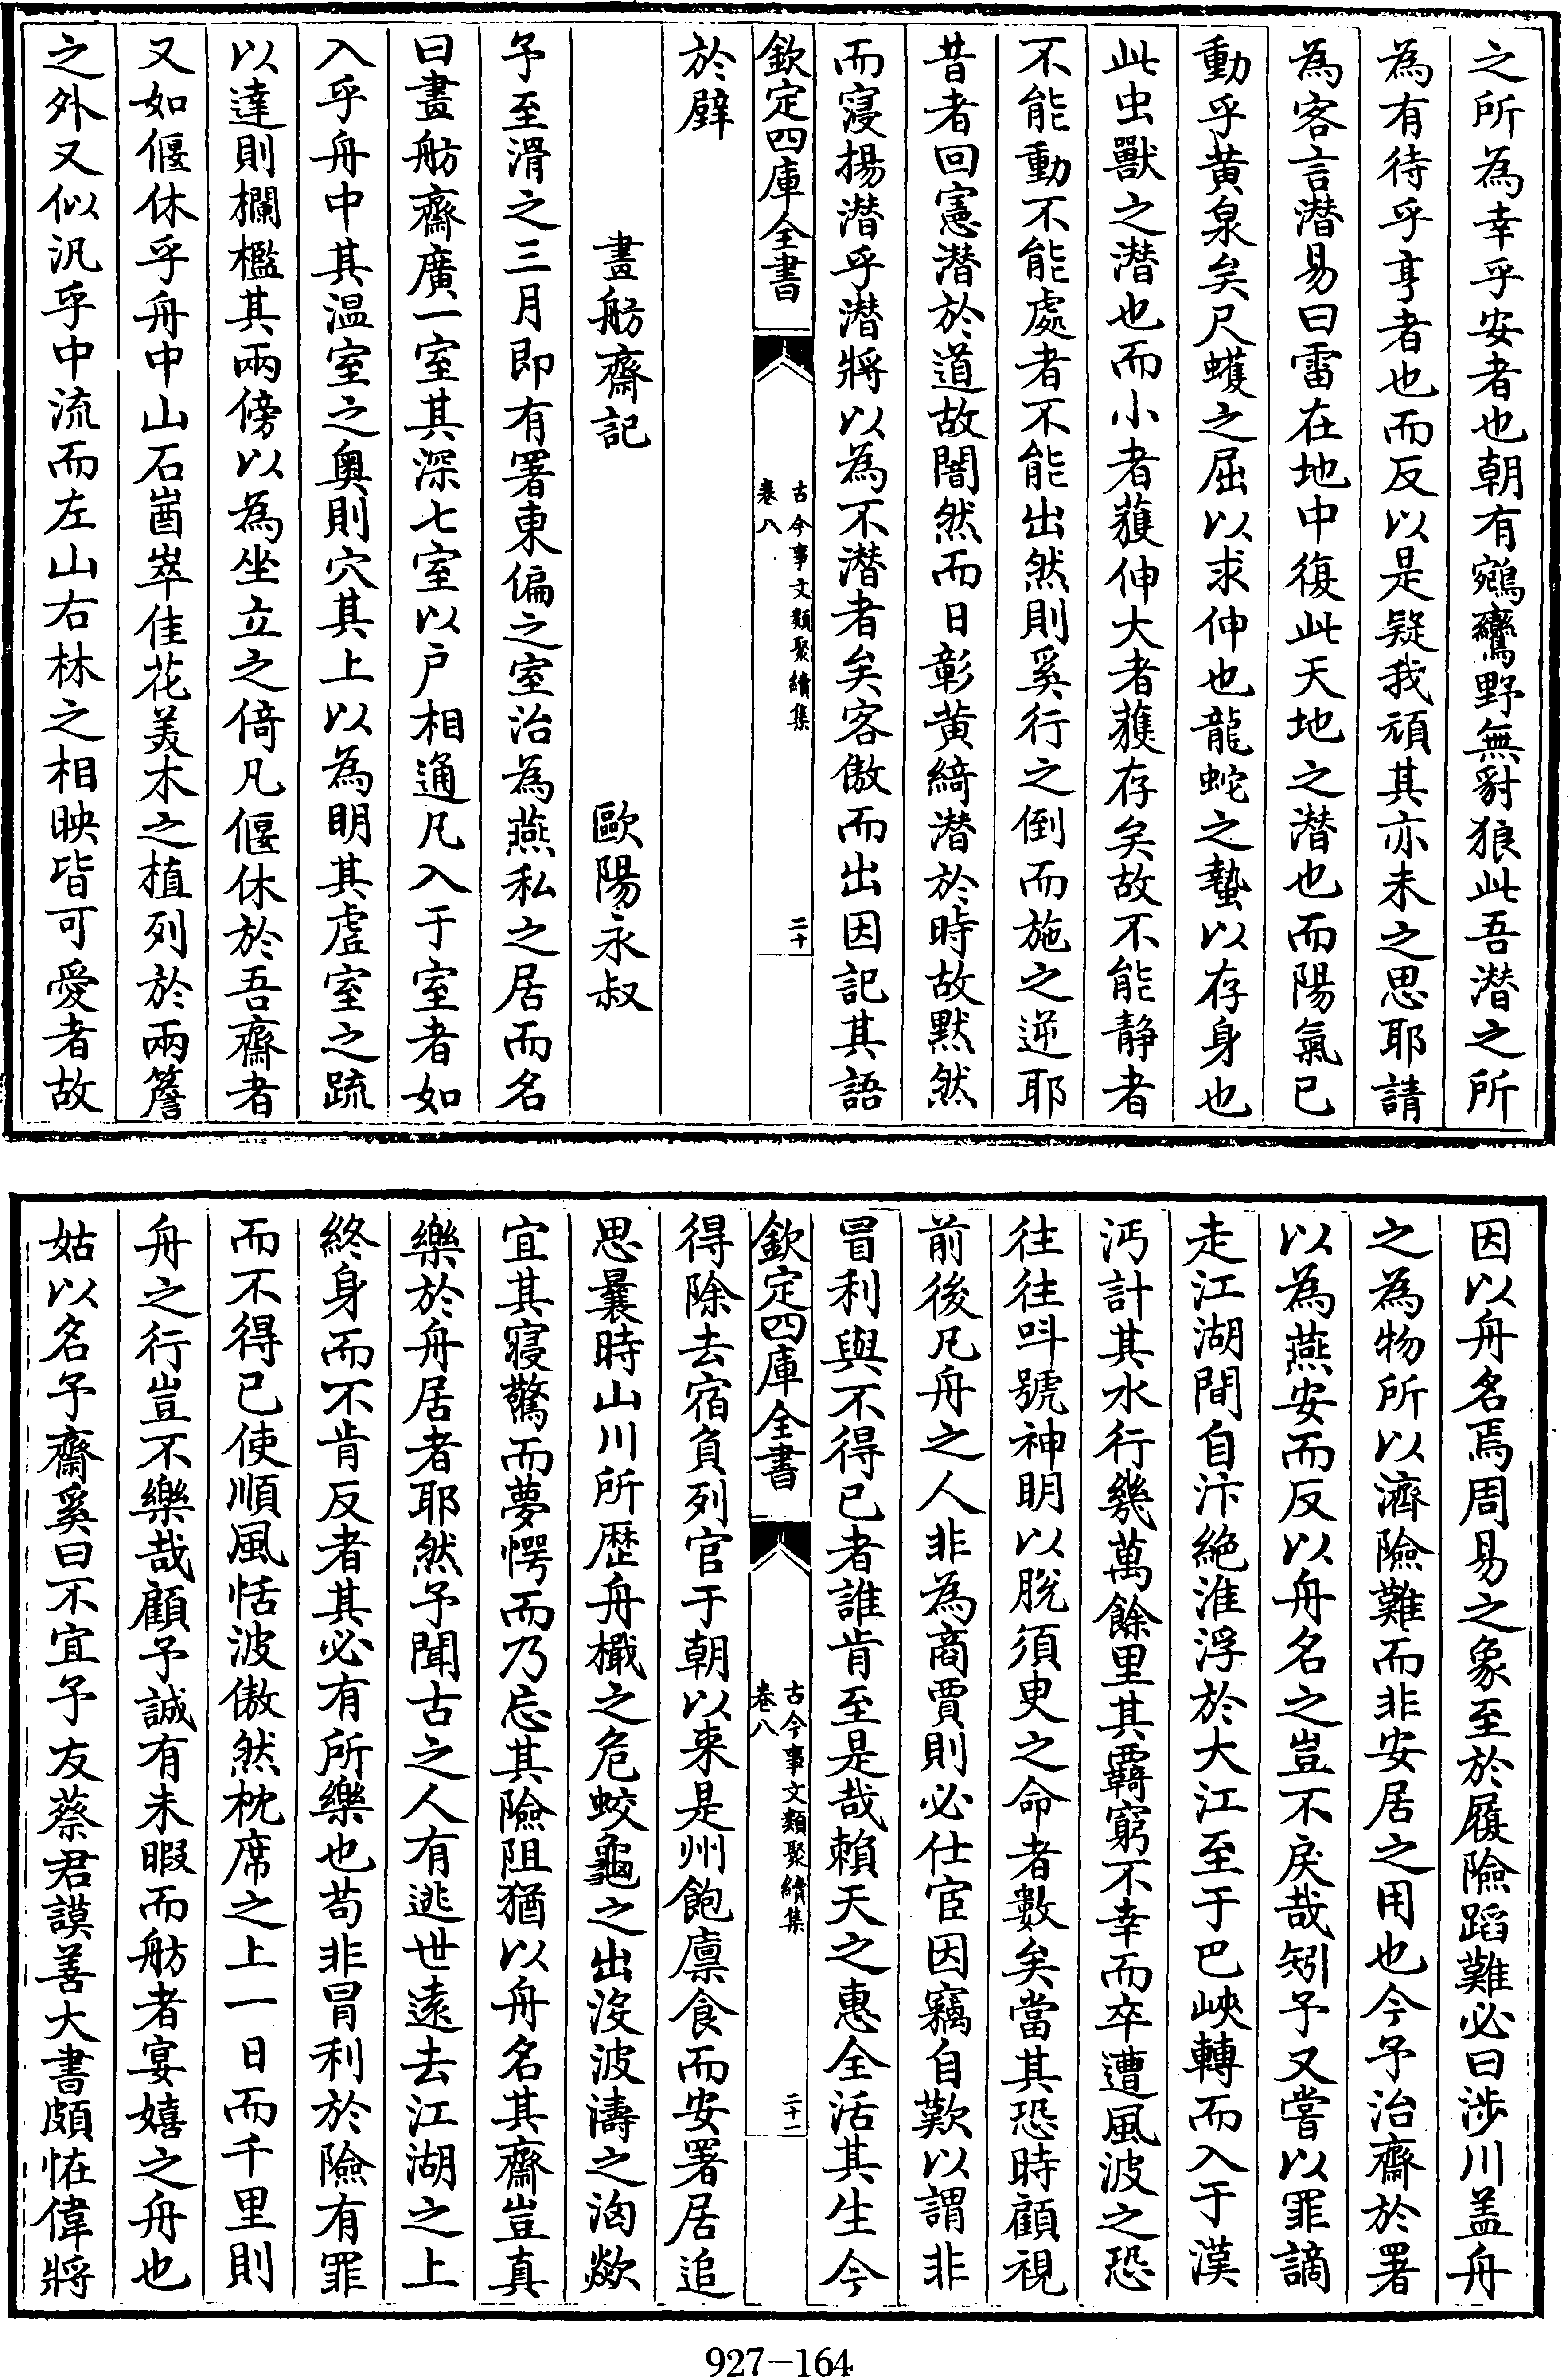 之所為幸乎安者也朝有鵷鸞野無豺狼此吾潜之所
為有待乎亨者也而反以是疑我頑其亦未之思耶請
為客言潜易曰雷在地中復此天地之潜也而陽氣已
動乎黄泉矣尺蠖之屈以求伸也龍蛇之蟄以存身也
此虫獸之潜也而小者蒦伸大者蒦存矣故不能静者
不能動不能處者不能出然則奚行之倒而施之逆耶
昔者回憲潜於道故闇然而日彰黄綺潜於時故默然
而寖揚潜乎潜將以為不潜者矣客傲而出因記其語
欽定四庫全書
古今事文類聚續集
卷八
二十
於壁
畫舫齋記 歐陽永叔
予至滑之三月即有署東偏之室治為燕私之居而名
曰畫舫齋廣一室其深七室以户相通凡入于室者如
入乎舟中其温室之奥則穴其上以為明其虚室之疏
以達則欄檻其兩傍以為坐立之倚凡偃休於吾齋者
又如偃休乎舟中山石崷崒佳花美木之植列於兩簷
之外又似汎乎中流而左山右林之相映皆可愛者故
因以舟名焉周易之象至於履險蹈難必曰涉川盖舟
之為物所以濟險難而非安居之用也今予治齋於署
以為燕安而反以舟名之豈不戾哉矧予又嘗以罪謫
走江湖間自汴絶淮浮於大江至于巴峽轉而入于漢
沔計其水行幾萬餘里其覊窮不幸而卒遭風波之恐
往往呌號神明以脱須臾之命者數矣當其恐時顧視
前後凡舟之人非為商賈則必仕宦因竊自歎以謂非
冒利與不得已者誰肯至是哉賴天之惠全活其生今
欽定四庫全書
古今事文類聚續集
卷八
二十一
得除去宿負列官于朝以来是州飽廪食而安署居追
思曩時山川所歴舟檝之危蛟鼉之出没波濤之洶歘
宜其寝驚而夢愕而乃忘其險阻猶以舟名其齋豈真
樂於舟居者耶然予聞古之人有逃世遠去江湖之上
終身而不肯反者其必有所樂也苟非冒利於險有罪
而不得已使順風恬波傲然枕席之上一日而千里則
舟之行豈不樂哉顧予誠有未暇而舫者宴嬉之舟也
姑以名予齋奚曰不宜予友蔡君謨善大書頗恠偉將
927-164